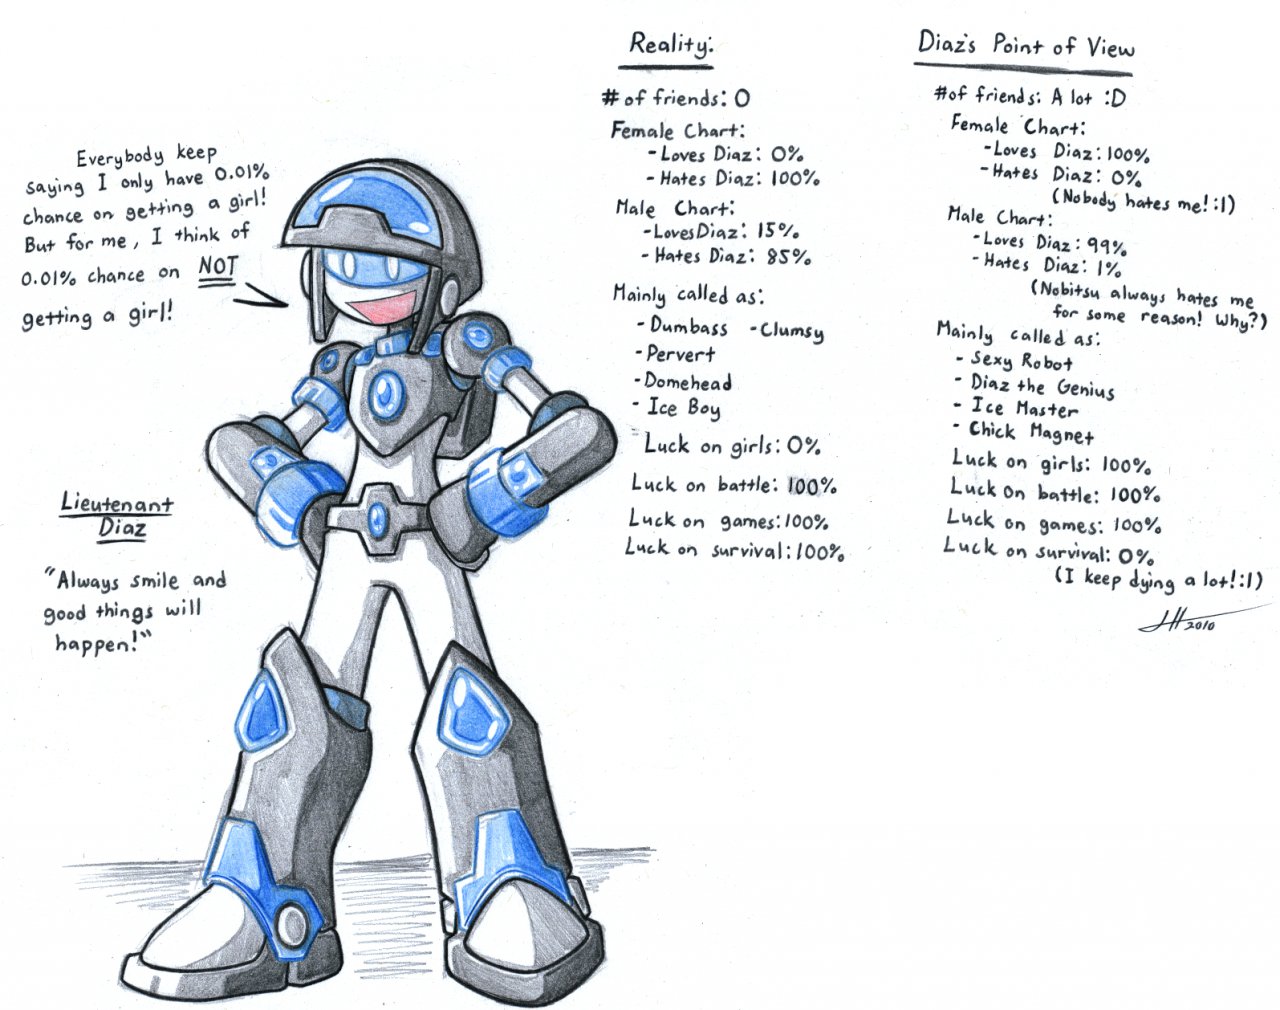 Everybody keep
saying I only have 0.01%
chance on getting a girl!
But for me, I think of
0.01% chance on NOT
getting a girl!
Lieutenant
Diaz
"Always smile and
good things will
happen!"
Reality:
# of friends: 0
Female Chart:
- Loves Diaz: 0%
- Hates Diaz: 100%
Male Chart:
- Loves Diaz: 15%
- Hates Diaz: 85%
Mainly called as:
- Dumbass - Clumsy
- Pervert
- Domehead
- Ice Boy
Luck on girls: 0%
Luck on battle: 100%
Luck on games: 100%
Luck on survival: 100%
Diaz's Point of View
# of friends: A lot :D
Female Chart:
- Loves Diaz: 100%
- Hates Diaz: 0%
(Nobody hates me! :1)
Male Chart:
- Loves Diaz: 99%
- Hates Diaz: 1%
(Nobitsu always hates me
for some reason! Why?)
Mainly called as:
- Sexy Robot
- Diaz the Genius
- Ice Master
- Chick Magnet
Luck on girls: 100%
Luck on battle: 100%
Luck on games: 100%
Luck on survival: 0%
(I keep dying a lot! :1)
2010